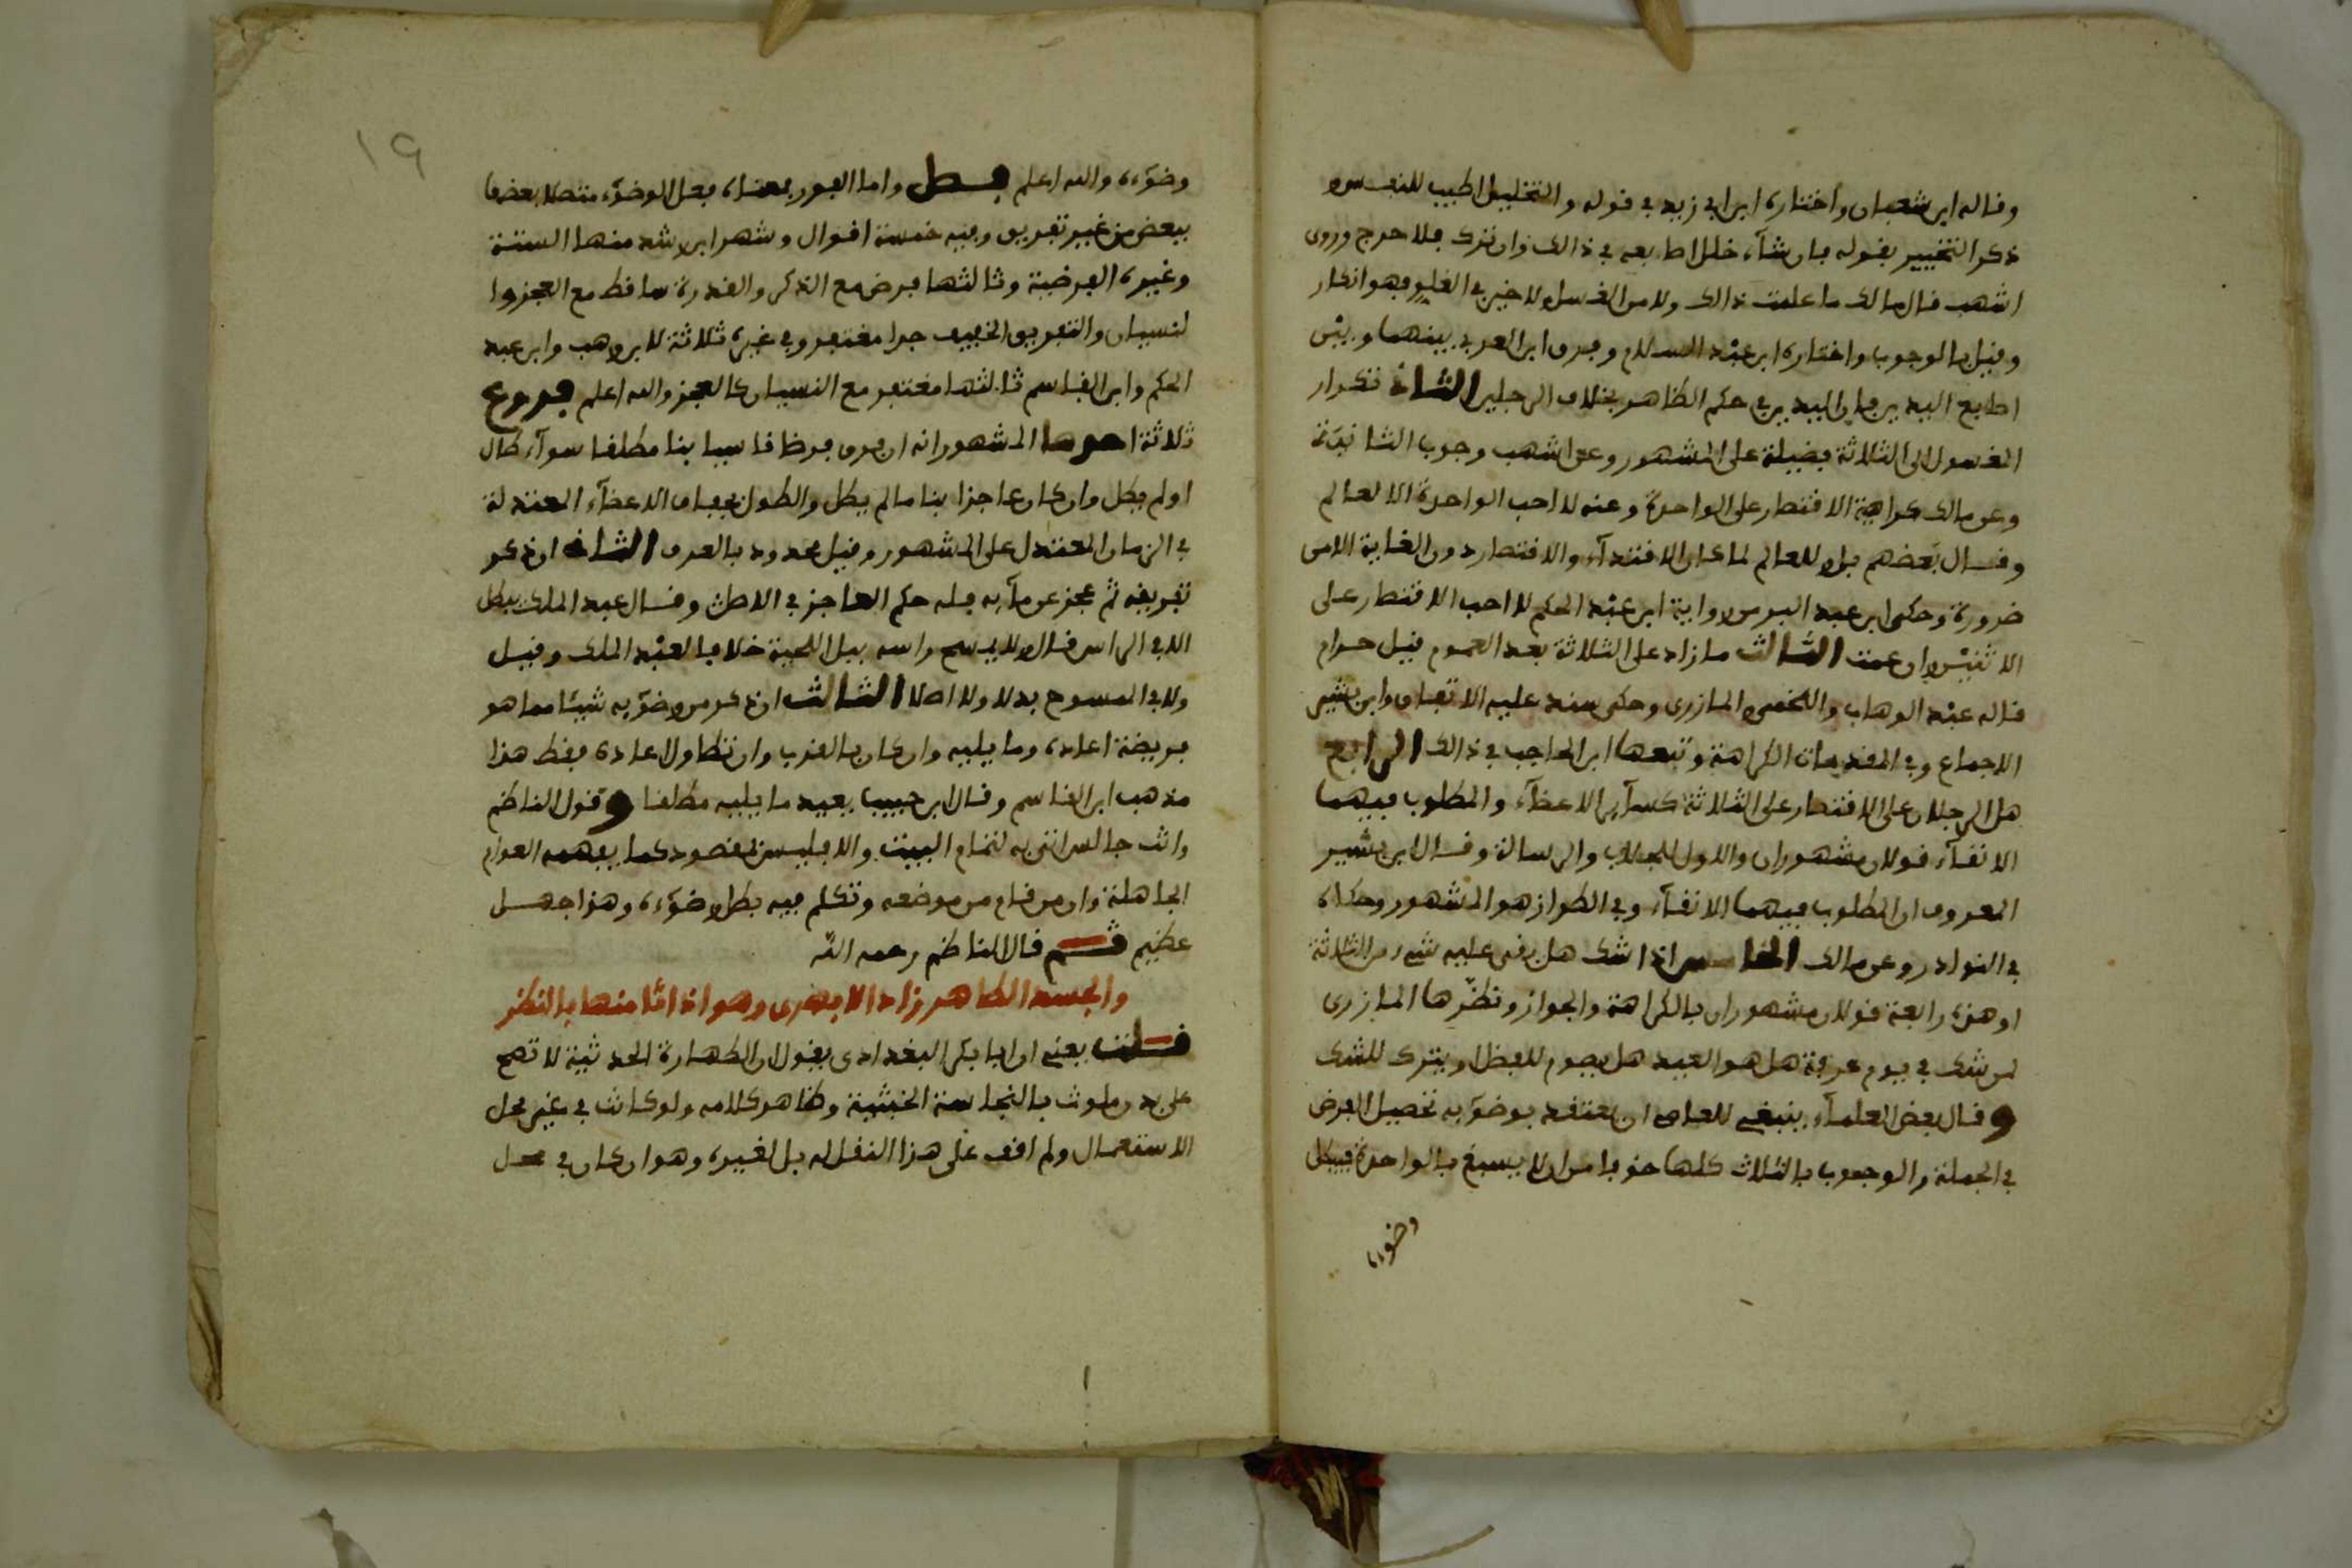 وقاله ابن شعبان واختاره ابن ابي زيد في قوله والتخليل اطيب للنفس و
ذكر التخيير بقوله بان شاء خلل اصابعه في ذالك وان ترك فلا حرج وروى
اشهب قال مالك ما علمت ذالك ولا من الغسل ولا خير في الغلو فهو انكار
وقيل بالوجوب واختاره ابن عبد السلام وفرق ابن العربي بينهما وبين
اصابع اليدين فان اليدين في حكم الظاهر بخلاف الرجلين الثاني تكرار
المغسول الى الثلاثة فضيلة على المشهور وعن اشهب وجوب الثانية
وعن مالك كراهية الاقتصار على الواحدة وعنه لا احب الواحدة الا لعالم
وقال بعضهم بل وللعالم لما كان الاقتداء والاقتصار دون الغاية الا من
ضرورة وحكى ابن عبد البر من رواية ابن عبد الحكم لا احب الاقتصار على
الاثنين وان عمت الثالث ما زاد على الثلاثة بعد العموم قيل حرام
قاله عبد الوهاب واللخمي والمازري وحكى سند عليه الاتفاق وابن بشير
الاجماع وفي المقدمات الكراهة وتبعها ابن الحاجب في ذالك الرابع
هل الرجلان على الاقتصار على الثلاثة كسائر الاعضاء والمطلوب فيهما
الانقاء قولان مشهوران والاول للجلاب والرسالة وقال ابن بشير
المعروف ان المطلوب فيهما الانقاء وفي الطراز هو المشهور وحكاه
في النوادر وعن مالك الخامس اذا شك هل بقي عليه شيء من الثلاثة
او هذه رابعة قولان مشهوران بالكراهة والجواز ونظرها المازري
لمن شك في يوم عرفة هل هو العيد هل يصوم للفضل او يترك للشك
و قال بعض العلماء ينبغي للعامي ان يعتقد بوضوئه تحصيل الفرض
في الجملة والوجوب بالثلاث كلها خوفا من ان لا يسبغ بالواحدة فيبطل
وضوءه
١٩
وضوءه والله اعلم فصل واما الفور بمعناه فعل الوضوء متصلا بعضها
ببعض من غير تفريق وفيه خمسة اقوال وشهر ابن رشد منها السنة
وغيره الفرضية وثالثها فرض مع الذكر والقدرة ساقط مع العجز وا
لنسيان والتفريق الخفيف جدا مغتفر وفي غيره ثلاثة لابن وهب وابن عبد
الحكم وابن القاسم ثالثها مغتفر مع النسيان كالعجز والله اعلم فروع
ثلاثة احدها المشهور انه ان فرق فرضا ناسيا بنا مطلقا سواء طال
او لم يطل وان كان عاجزا بنا ما لم يطل والطول بجفاف الاعضاء المعتدلة
في الزمان المعتدل على المشهور وقيل محدود بالعرف الثاني ان ذكر
تفريقه ثم عجز عن مائه فله حكم العاجز في الاصل وقال عبد الملك يبطل
الا في الراس قال ولا يمسح راسه ببلل اللحية خلافا لعبد الملك وقيل
ولا في الممسوح بدلا ولا اصلا الثالث ان ذكر من وضوئه شيئا مما هو
فريضة اعاده وما يليه وان كان بالقرب وان تطاول اعاده فقط هذا
مذهب ابن القاسم وقال ابن حبيب يعيد ما يليه مطلقا و قول الناظم
وانت جالس اتى به لتمام البيت والا فليس لمقصود كما يفهمه العوام
الجاهلة وان من قام من موضعه وتكلم فيه بطل وضوءه وهذا جهل
عظيم قسم قال الناظم رحمه الله
والجسد الطاهر زاد الابهري وهو اذا اتا منها بالنظر
قلت يعني ان ابا بكر البغدادي يقول ان الطهارة الحدثية لا تصح
على بدن ملوث بالنجاسة الخبثية وظاهر كلامه ولو كانت في غير محل
الاستعمال ولم اقف على هذا النقل له بل لغيره وهو ان كان في محل